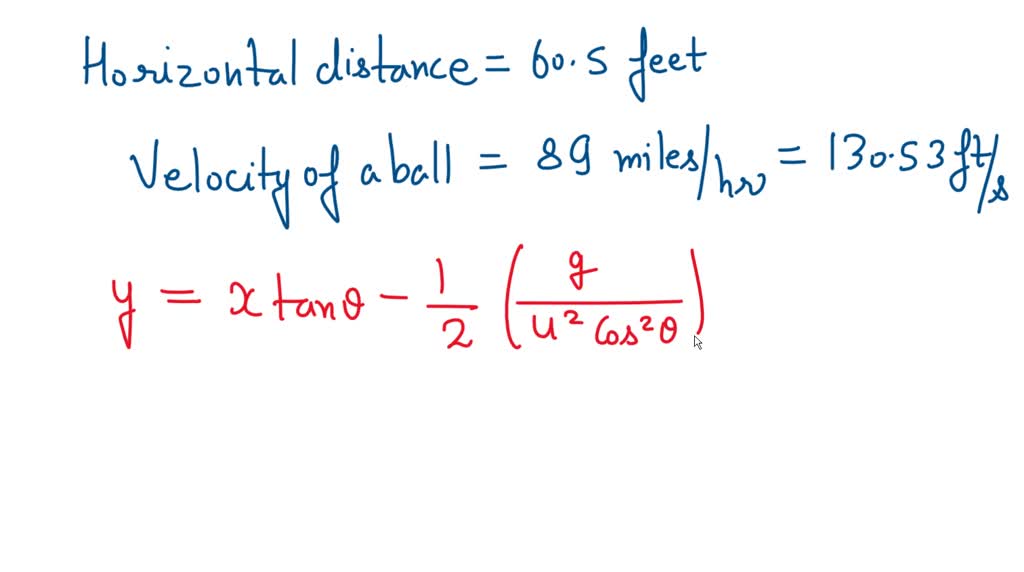 Horizontal distance = 60.5 feet
Velocity of a ball = 89 miles/hr = 130.53 ft/s
y = x tanθ - 1/2 (g / u² cos²θ)